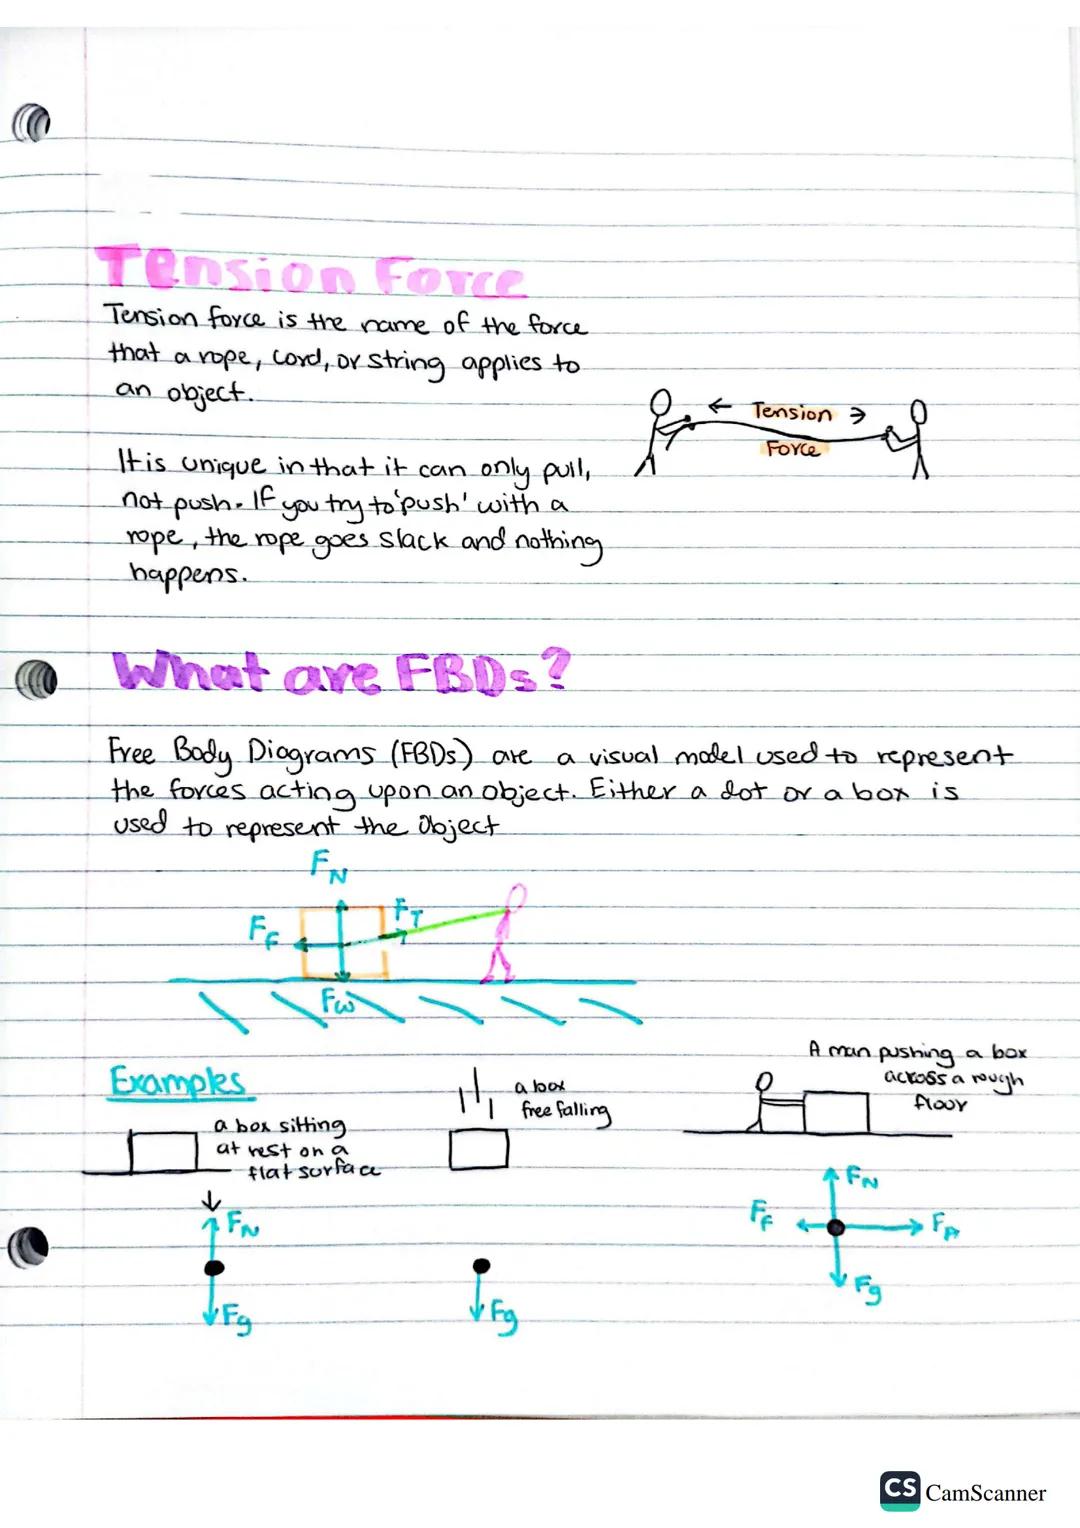 Tension Force
Tension force is the name of the force
that a rope, cord, or string applies to
an object.
← Tension →
Force
It is unique in that it can only pull,
not push. If you try to 'push' with a
rope, the rope goes slack and nothing
happens.
What are FBDs?
Free Body Diagrams (FBDs) are a visual model used to represent
the forces acting upon an object. Either a dot or a box is
used to represent the Object
FN
FT
FF
Fw
Examples
a box sitting
at rest on a
flat surface
a box
free falling
A man pushing a box
across a rough
floor
FN
Fg
Fg
FN
FF
FA
Fg
CS CamScanner